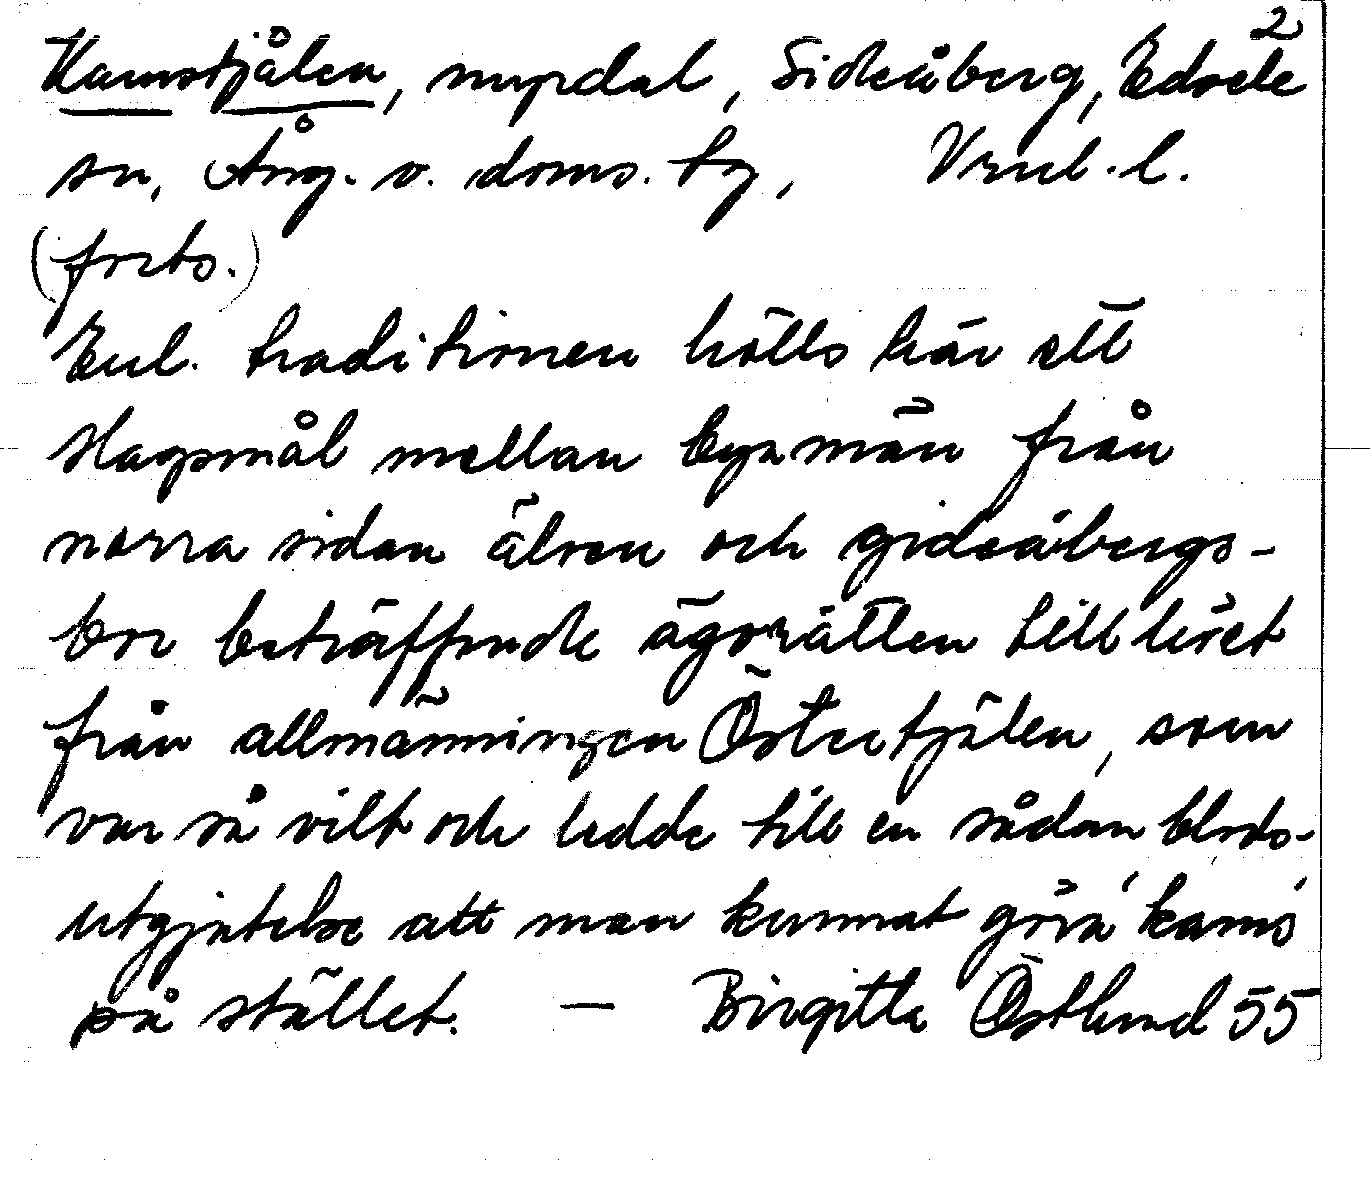 2
Kamstjälen, myrdal, Gideåberg, Edsele
sn, Ång. v. doms. tg, Vnl. l.
(forts.)
Enl. traditionen hölls här ett
slagsmål mellan bymän från
norra sidan älven och gideåbergs-
bor beträffande äganrätten till höet
från allmänningen Östertjälen, som
var så vilt och ledde till en sådan blods-
utgjutelse att man kunnat göra 'kams'
på stället. — Birgitta Östlund 55